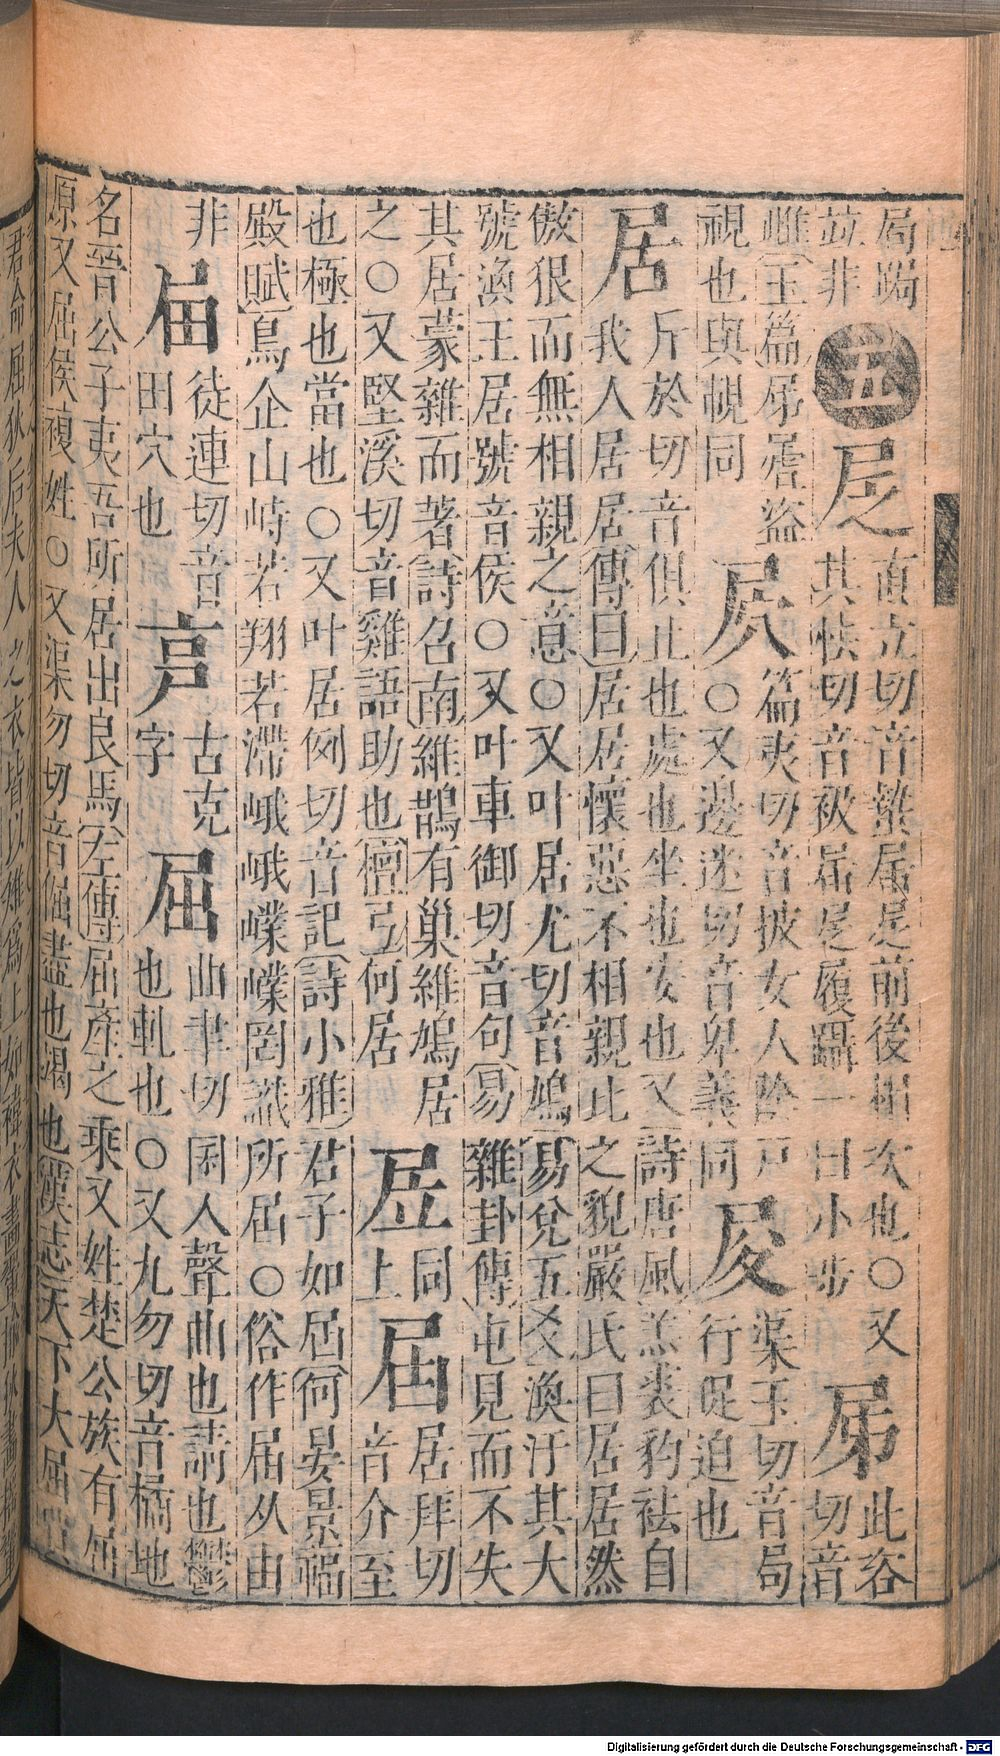 局跼
竝非
五
㞓
直立切音蟄㞓㞓前後相次也○又
其帙切音级㞓㞓履躡一曰小步
𡱁
此咨切音
雌玉篇𡱁㞏盜
視也與覗同
㞎
篇夷切音披女人陰戶
○又邊迷切音卑義同
㞋
渠玉切音局
行促迫也
居
斤於切音俱止也處也坐也安也又詩唐風羔裘豹袪自
我人居居傳曰居居懷惡不相親此之貌嚴氏曰居居然
傲狠而無相親之意○又叶居尤切音鳩易兌五爻渙汗其大
號渙王居號音侯○又叶車御切音句易雜卦傳屯見而不失
其居蒙雜而著詩召南維鵲有巢維鳩居
之○又堅溪切音雞語助也檀弓何居
㞐
同上
屆
居拜切
音介至
也極也當也○又叶居例切音記詩小雅君子如屆何晏景福
殿賦鳥企山峙若翔若滯峨峨嶫嶫罔識所屆○俗作届从由
非
徒連切音
田穴也
古克
字
屈
曲聿切囷入聲曲也請也
也軋也○又九勿切音橘地
名晉公子夷吾所居出良馬左傳屈產之乘又姓楚公族有屈
原又屈侯複姓○又渠勿切音倔盡也竭也漢志天下大屈
Digitalisierung gefördert durch die Deutsche Forschungsgemeinschaft - DFG